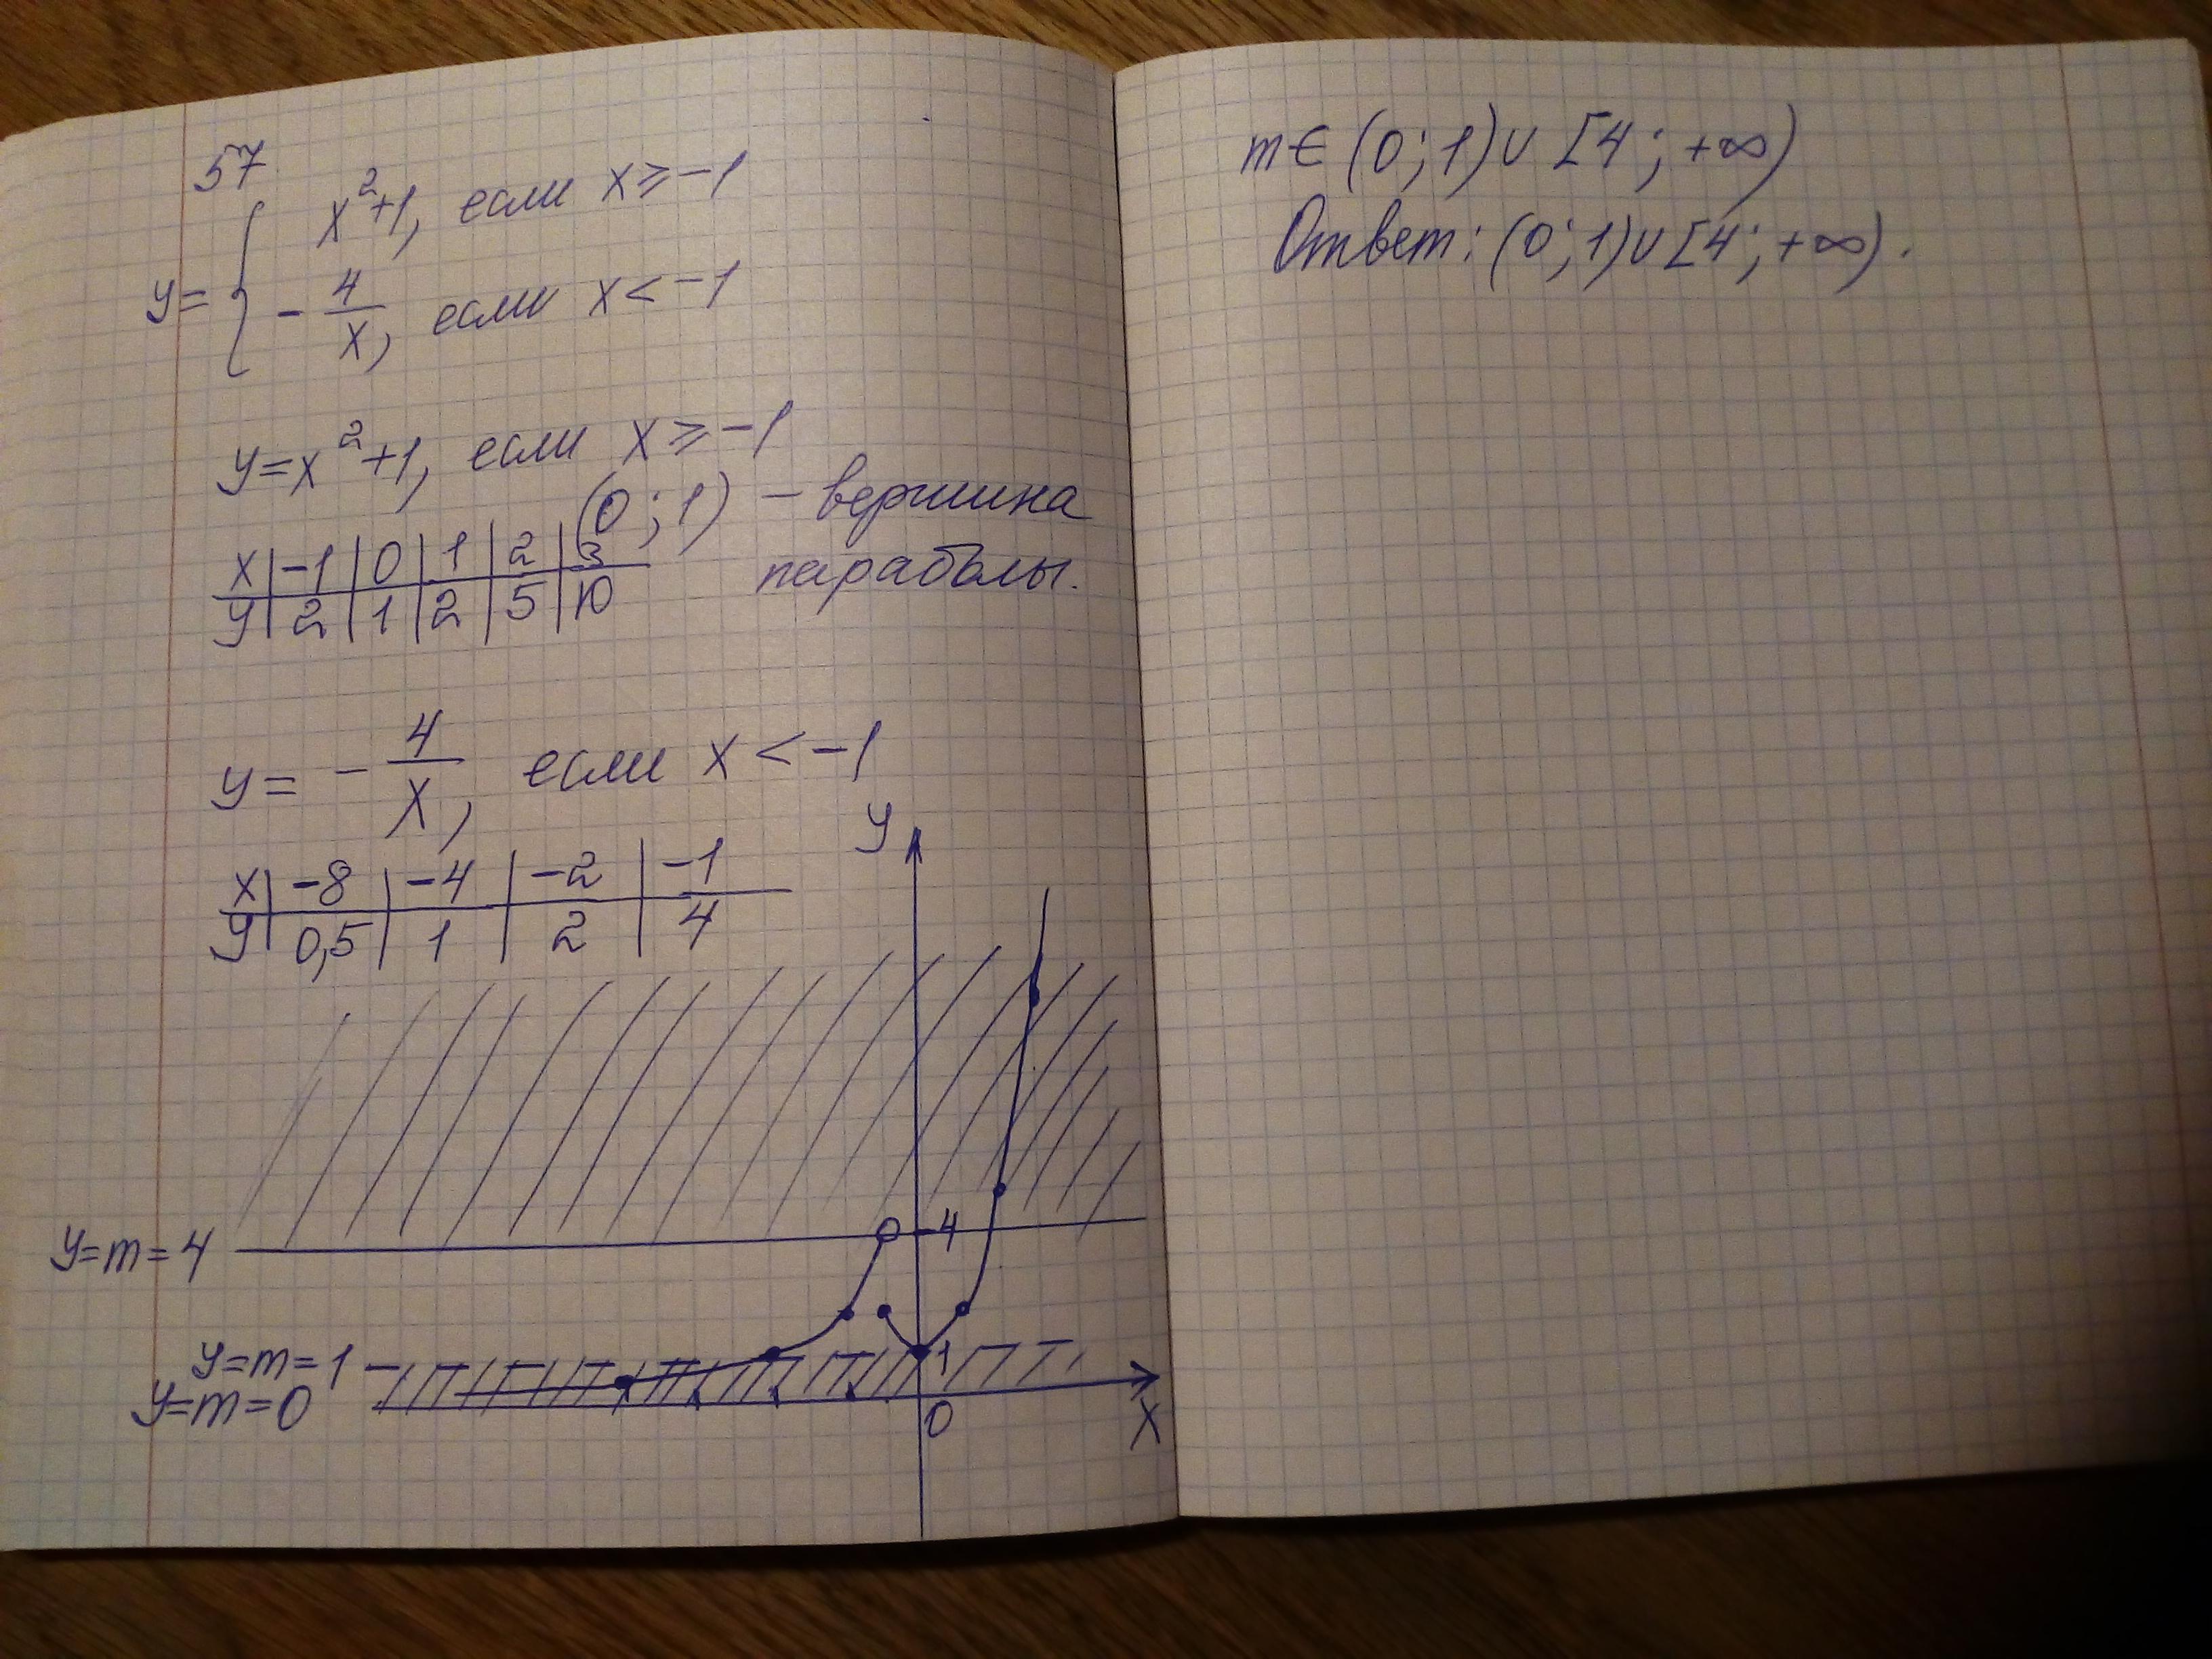 57
y = { x²+1, если x ≥ -1
- 4/x, если x < -1
y = x²+1, если x ≥ -1
(0;1) – вершина
параболы.
x | -1 | 0 | 1 | 2 | 3
y | 2 | 1 | 2 | 5 | 10
y = - 4/x, если x < -1
x | -8 | -4 | -2 | -1
y | 0,5 | 1 | 2 | 4
y
4
y=m=4
y=m=1
1
y=m=0
0
x
m ∈ (0;1) ∪ [4; +∞)
Ответ: (0;1) ∪ [4; +∞).